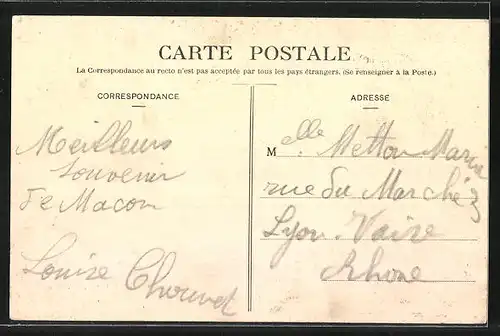 CARTE POSTALE
La Correspondance au recto n'est pas acceptée par tous les pays étrangers. (Se renseigner à la Poste.)
CORRESPONDANCE
Meilleurs
souvenir
de Macon
Louise Chouvet
ADRESSE
Melle. Metton Maria
rue du Marché 3
Lyon-Vaise
Rhone